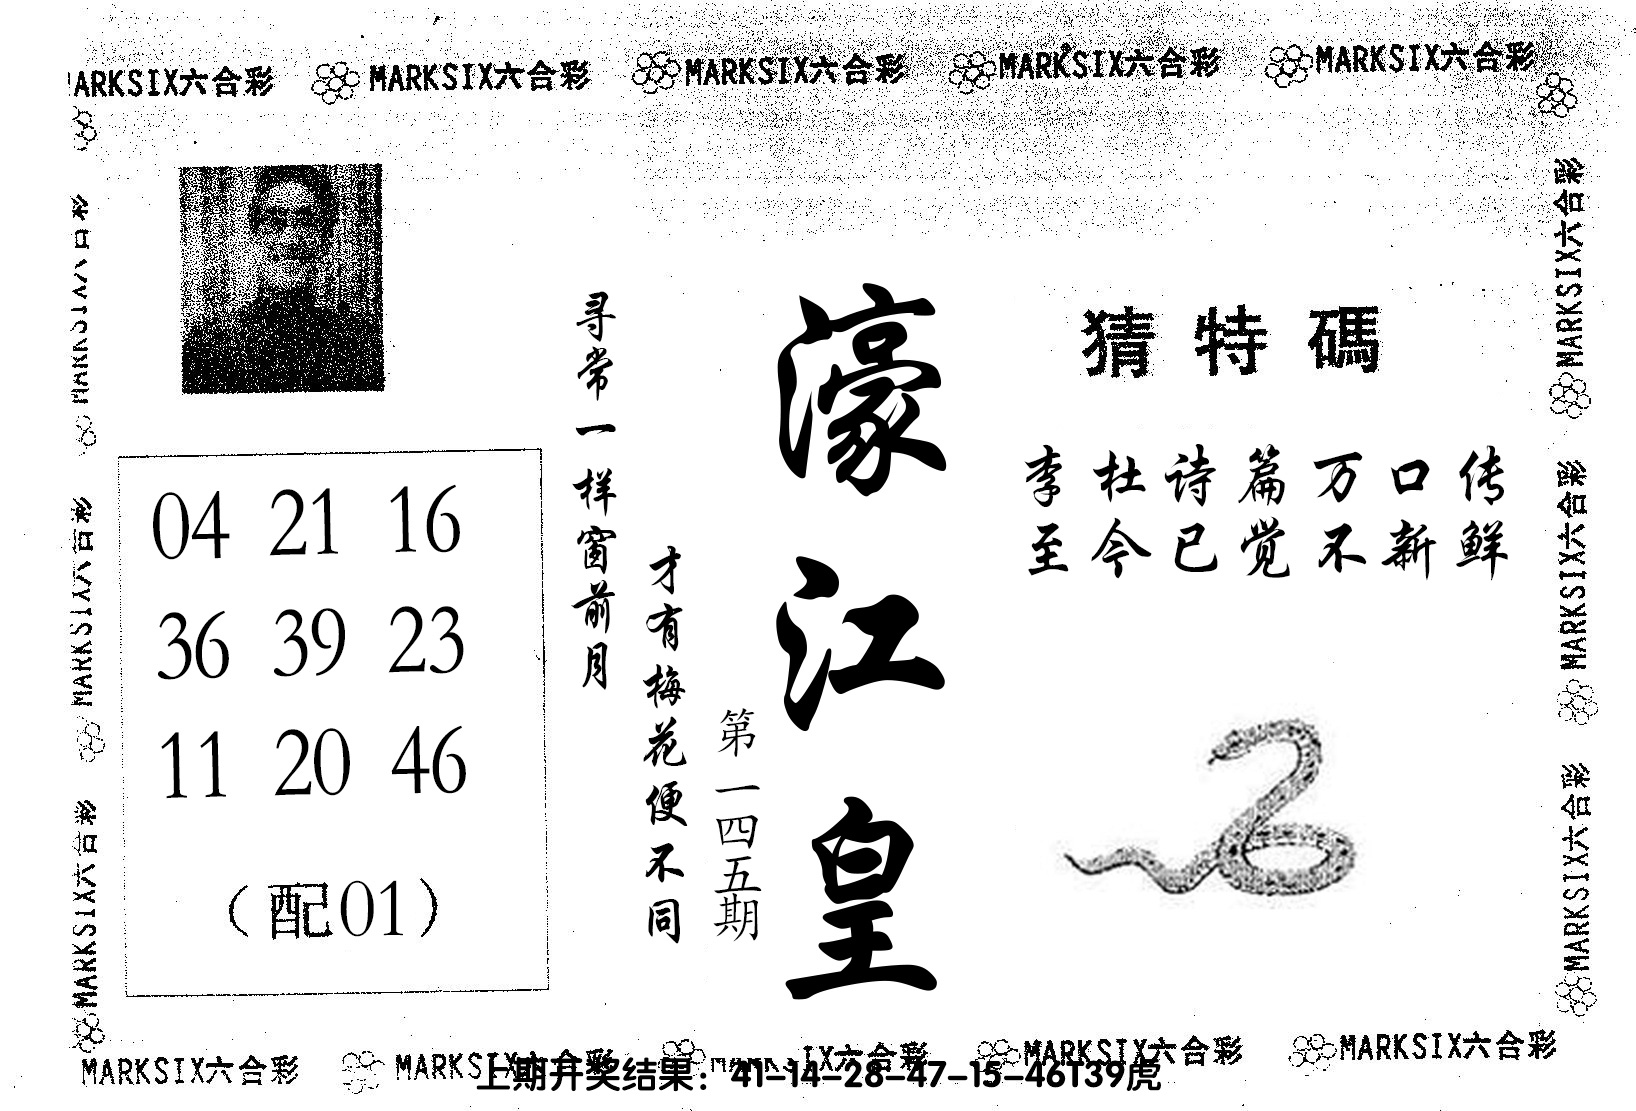 MARKSIX六合彩 MARKSIX六合彩 MARKSIX六合彩 MARKSIX六合彩 MARKSIX六合彩
猜特碼
李杜诗篇万口传
至今已觉不新鲜
濠江皇
第一四五期
寻常一样窗前月
才有梅花便不同
04 21 16
36 39 23
11 20 46
（配01）
MARKSIX六合彩
MARKSIX六合彩
MARKSIX六合彩
MARKSIX六合彩
MARKSIX六合彩
MARKSIX六合彩
MARKSIX六合彩 MARKSIX六合彩 MARKSIX六合彩 MARKSIX六合彩 MARKSIX六合彩
上期开奖结果：41-14-28-47-15-46T39虎